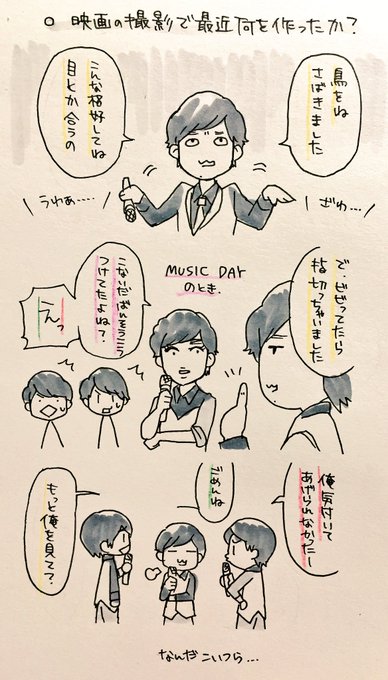 ○ 映画の撮影で最近何を作ったか？
鳥をね
さばきました
こんな格好してね
目とか合うの
ざわ…
うわぁ…‥
で、ビビってたら
指切っちゃいました
MUSIC DAY
のとき.
こないだばんそうこう
つけてたよね？
えっ
俺気付いて
あげられなかったー
ごめんね
もっと俺を見てて？
なんだこいつら…